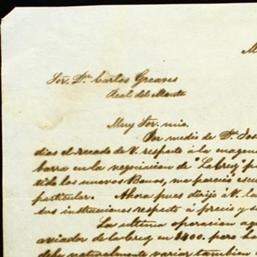 M
Sor. Dn. Carlos Greaves
Real del Monte
Muy Sor. mio.
Por medio de Dn. Jos
dias el recado de V. respeto á la maquin
barra en la negociacion de "La Cruz" p
los nuevos Bonos, me pareció
particular. Ahora pues dirijo V. l
sus instrucciones respeto á precio y
La ultima operacion
aviador de la Cruz en 1400. pero
debe naturalmente variar tambien